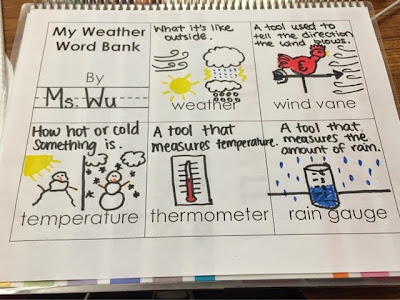 My Weather
Word Bank
By
Ms. Wu
What it's like
outside.
weather
A tool used to
tell the direction
the wind blows.
wind vane
How hot or cold
something is.
temperature
A tool that
measures temperature.
thermometer
A tool that
measures the
amount of rain.
rain gauge